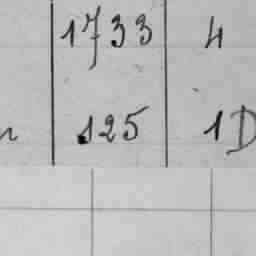 1733 4
125 1D